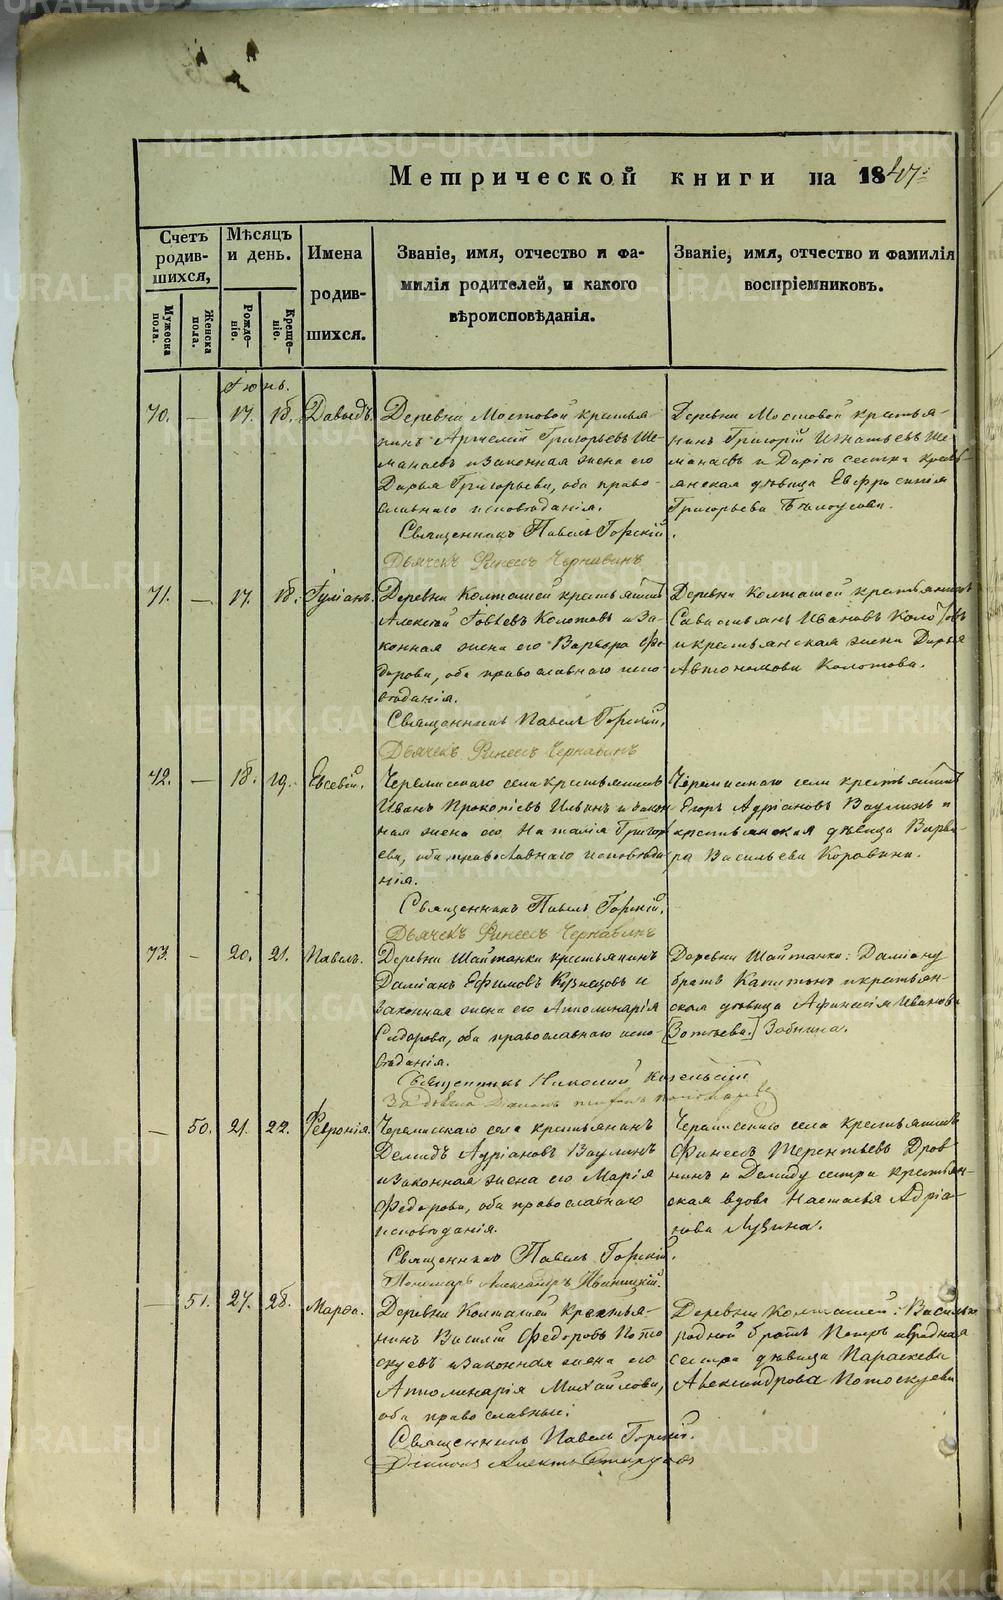 Метрической книги на 1847:
Счетъ родив-шихся,
Мѣсяцъ и день.
Имена родив-шихся.
Званіе, имя, отчество и фа-
милія родителей, и какого
вѣроисповѣданія.
Званіе, имя, отчество и фамилія
воспріемниковъ.
Мужеска пола.
Женска пола.
Рожде-ніе.
Креще-ніе.
Іюнь.
70. — 17. 18. Давыдъ.
Деревни Мостовой крестья-
нинъ Артемій Григорьевъ Ше-
манаевъ и законная жена его
Дарья Григорьева, оба право-
славнаго исповѣданія.
Священникъ Павелъ Горскій.
Дьячекъ Финеесъ Чернавинъ
Деревни Мостовой крестья-
нинъ Григорій Игнатьевъ Ше-
манаевъ и Даріи сестра крестъ-
янская дѣвица Евфросинія
Григорьева Бѣлоусова.
71. — 17. 18. Іуліанъ.
Деревни Колташей крестьянинъ
Алексѣй Іовлевъ Колотовъ и за-
конная жена его Варвара Фе-
дорова, оба православнаго испо-
вѣданія.
Священникъ Павелъ Горскій.
Дьячекъ Финеесъ Чернавинъ
Деревни Колташей крестьянинъ
Савастьянъ Ивановъ Колотовъ
и крестьянская жена Дарья
Автономова Колотова.
72. — 18. 19. Евсевій.
Черемисскаго села крестьянинъ
Иванъ Прокопіевъ Ильинъ и закон
ная жена его Наталія Григорь
ева, оба православнаго исповѣда-
нія.
Священникъ Павелъ Горскій.
Дьячекъ Финеесъ Чернавинъ
Черемисскаго села крестьянинъ
Егоръ Адріановъ Ваулинъ и
крестьянская дѣвица Варва-
ра Васильева Коровина.
73. — 20. 21. Павелъ.
Деревни Шайтанки крестьянинъ
Даміанъ Ефимовъ Кузнецовъ и
законная жена его Апполинарія
Сидорова, оба православнаго испо-
вѣданія.
Священникъ Николай
Деревни Шайтанки: Даміану
братъ Капитонъ и крестьян-
ская дѣвица Афанасія Иванова
[Зотѣева.] Забнина.
— 50. 21. 22. Февронія.
Черемисскаго села крестьянинъ
Демидъ Адріановъ Ваулинъ
и законная жена его Марія
Федорова, оба православнаго
исповѣданія.
Священникъ Павелъ Горскій.
Пономарь Александръ
Черемисскаго села крестьянинъ
Финеесъ Терентьевъ Дров
нинъ и Демиду сестра крестьян-
ская вдова Настасья Адріа-
нова Лузина.
— 51. 27. 28. Марѳа.
Деревни Колташей Крестья-
нинъ Василій Федоровъ Пото
скуевъ и законная жена его
Апполинарія Михайлова,
оба православные.
Священникъ Павелъ Горскій.
Деревни Колташей: Василью
родной братъ Петръ и родная
сестра дѣвица Параскева
Александрова Потоскуева
METRIKI.GASO-URAL.RU